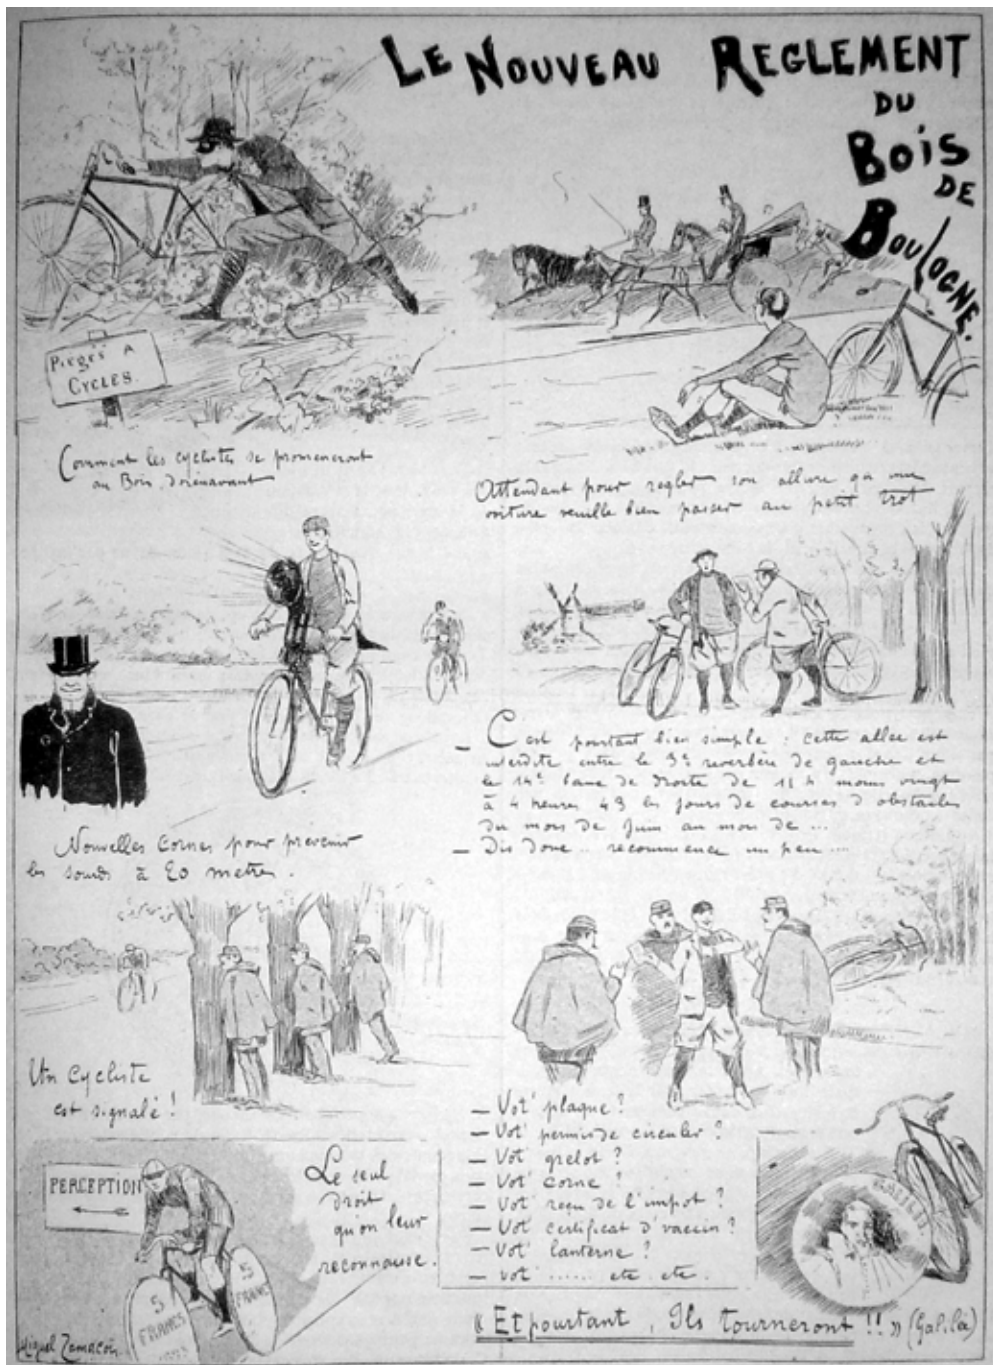 LE NOUVEAU REGLEMENT
DU
BOIS
DE
BOULOGNE.
Pieges A
CYCLES
Comment les cyclistes se promeneront
au Bois, dorenavant
Attendant pour regler son allure qu'une
voiture veuille bien passer au petit trot
Nouvelles cornes pour prevenir
les sourds à 20 metres.
— C'est pourtant bien simple : cette allee est
interdite entre le 3e reverbère de gauche et
le 14e banc de droite de 11 h moins vingt
à 4 heures 43 les jours de courses d'obstacles
du mois de Juin au mois de ...
— Dis donc .. recommence un peu ....
Un Cycliste
est signalé !
— Vot' plaque ?
— Vot' permis de circuler ?
— Vot' grelot ?
— Vot' corne ?
— Vot' reçu de l'impot ?
— Vot' certificat d'vaccin ?
— Vot' lanterne ?
— vot' ...... etc etc.
PERCEPTION
5
FRANCS
5
FRANCS
Le seul
droit
qu'on leur
reconnaisse.
GALILÉE
« Et pourtant, Ils tourneront !! » (Galilée)
Miguel Zamacoïs